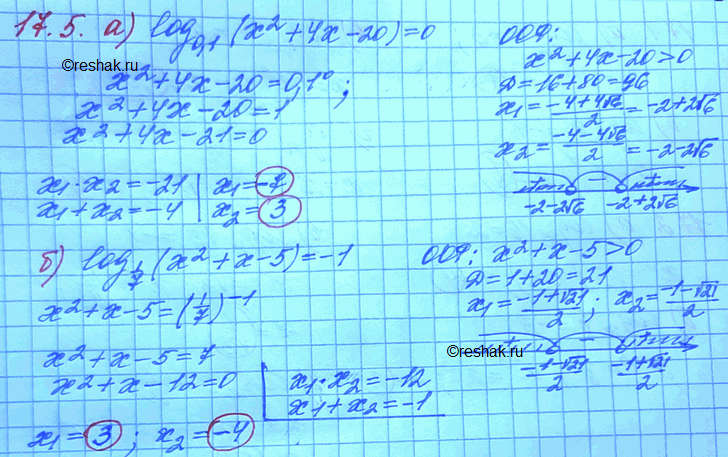 17.5. а) log₀,₁ (x²+4x-20)=0
©reshak.ru
x²+4x-20=0,1⁰ ;
x²+4x-20=1
x²+4x-21=0
x₁·x₂=-21 | x₁=-7
x₁+x₂=-4 | x₂=3
ООФ:
x²+4x-20>0
D=16+80=96
x₁=(-4+4√6)/2=-2+2√6
x₂=(-4-4√6)/2=-2-2√6
+ - +
-2-2√6 -2+2√6
б) log_(1/7) (x²+x-5)=-1
x²+x-5=(1/7)⁻¹
x²+x-5=7
x²+x-12=0
x₁·x₂=-12
x₁+x₂=-1
x₁=3; x₂=-4
ООФ: x²+x-5>0
D=1+20=21
x₁=(-1+√21)/2; x₂=(-1-√21)/2
+ - +
©reshak.ru
(-1-√21)/2 (-1+√21)/2